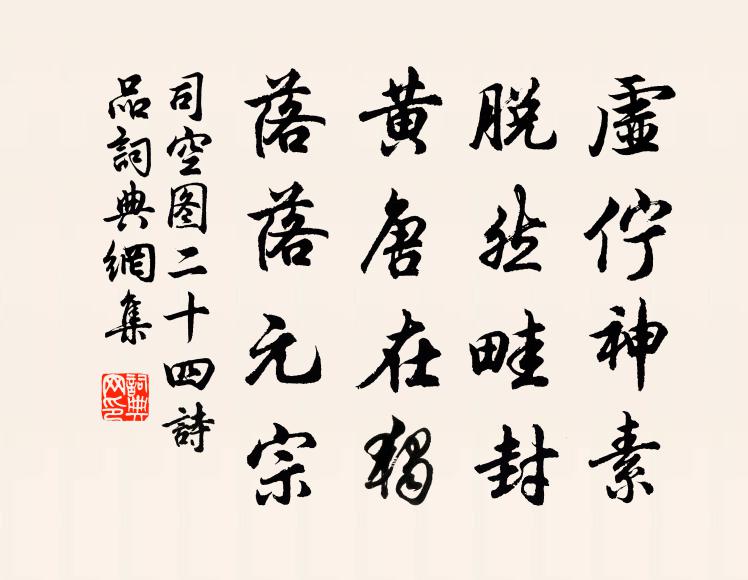 虛佇神素
脱然畦封
黃唐在獨
落落元宗
司空图二十四詩
品詞典網集
詞典
网印